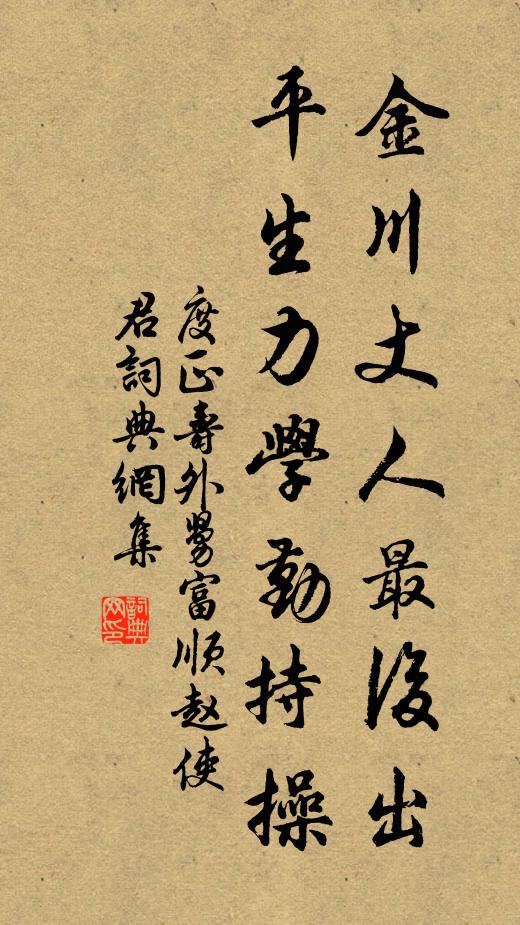 金川丈人最後出
平生力學勤持操
度正壽外舅富順赵使
君詞典網集
詞典网印